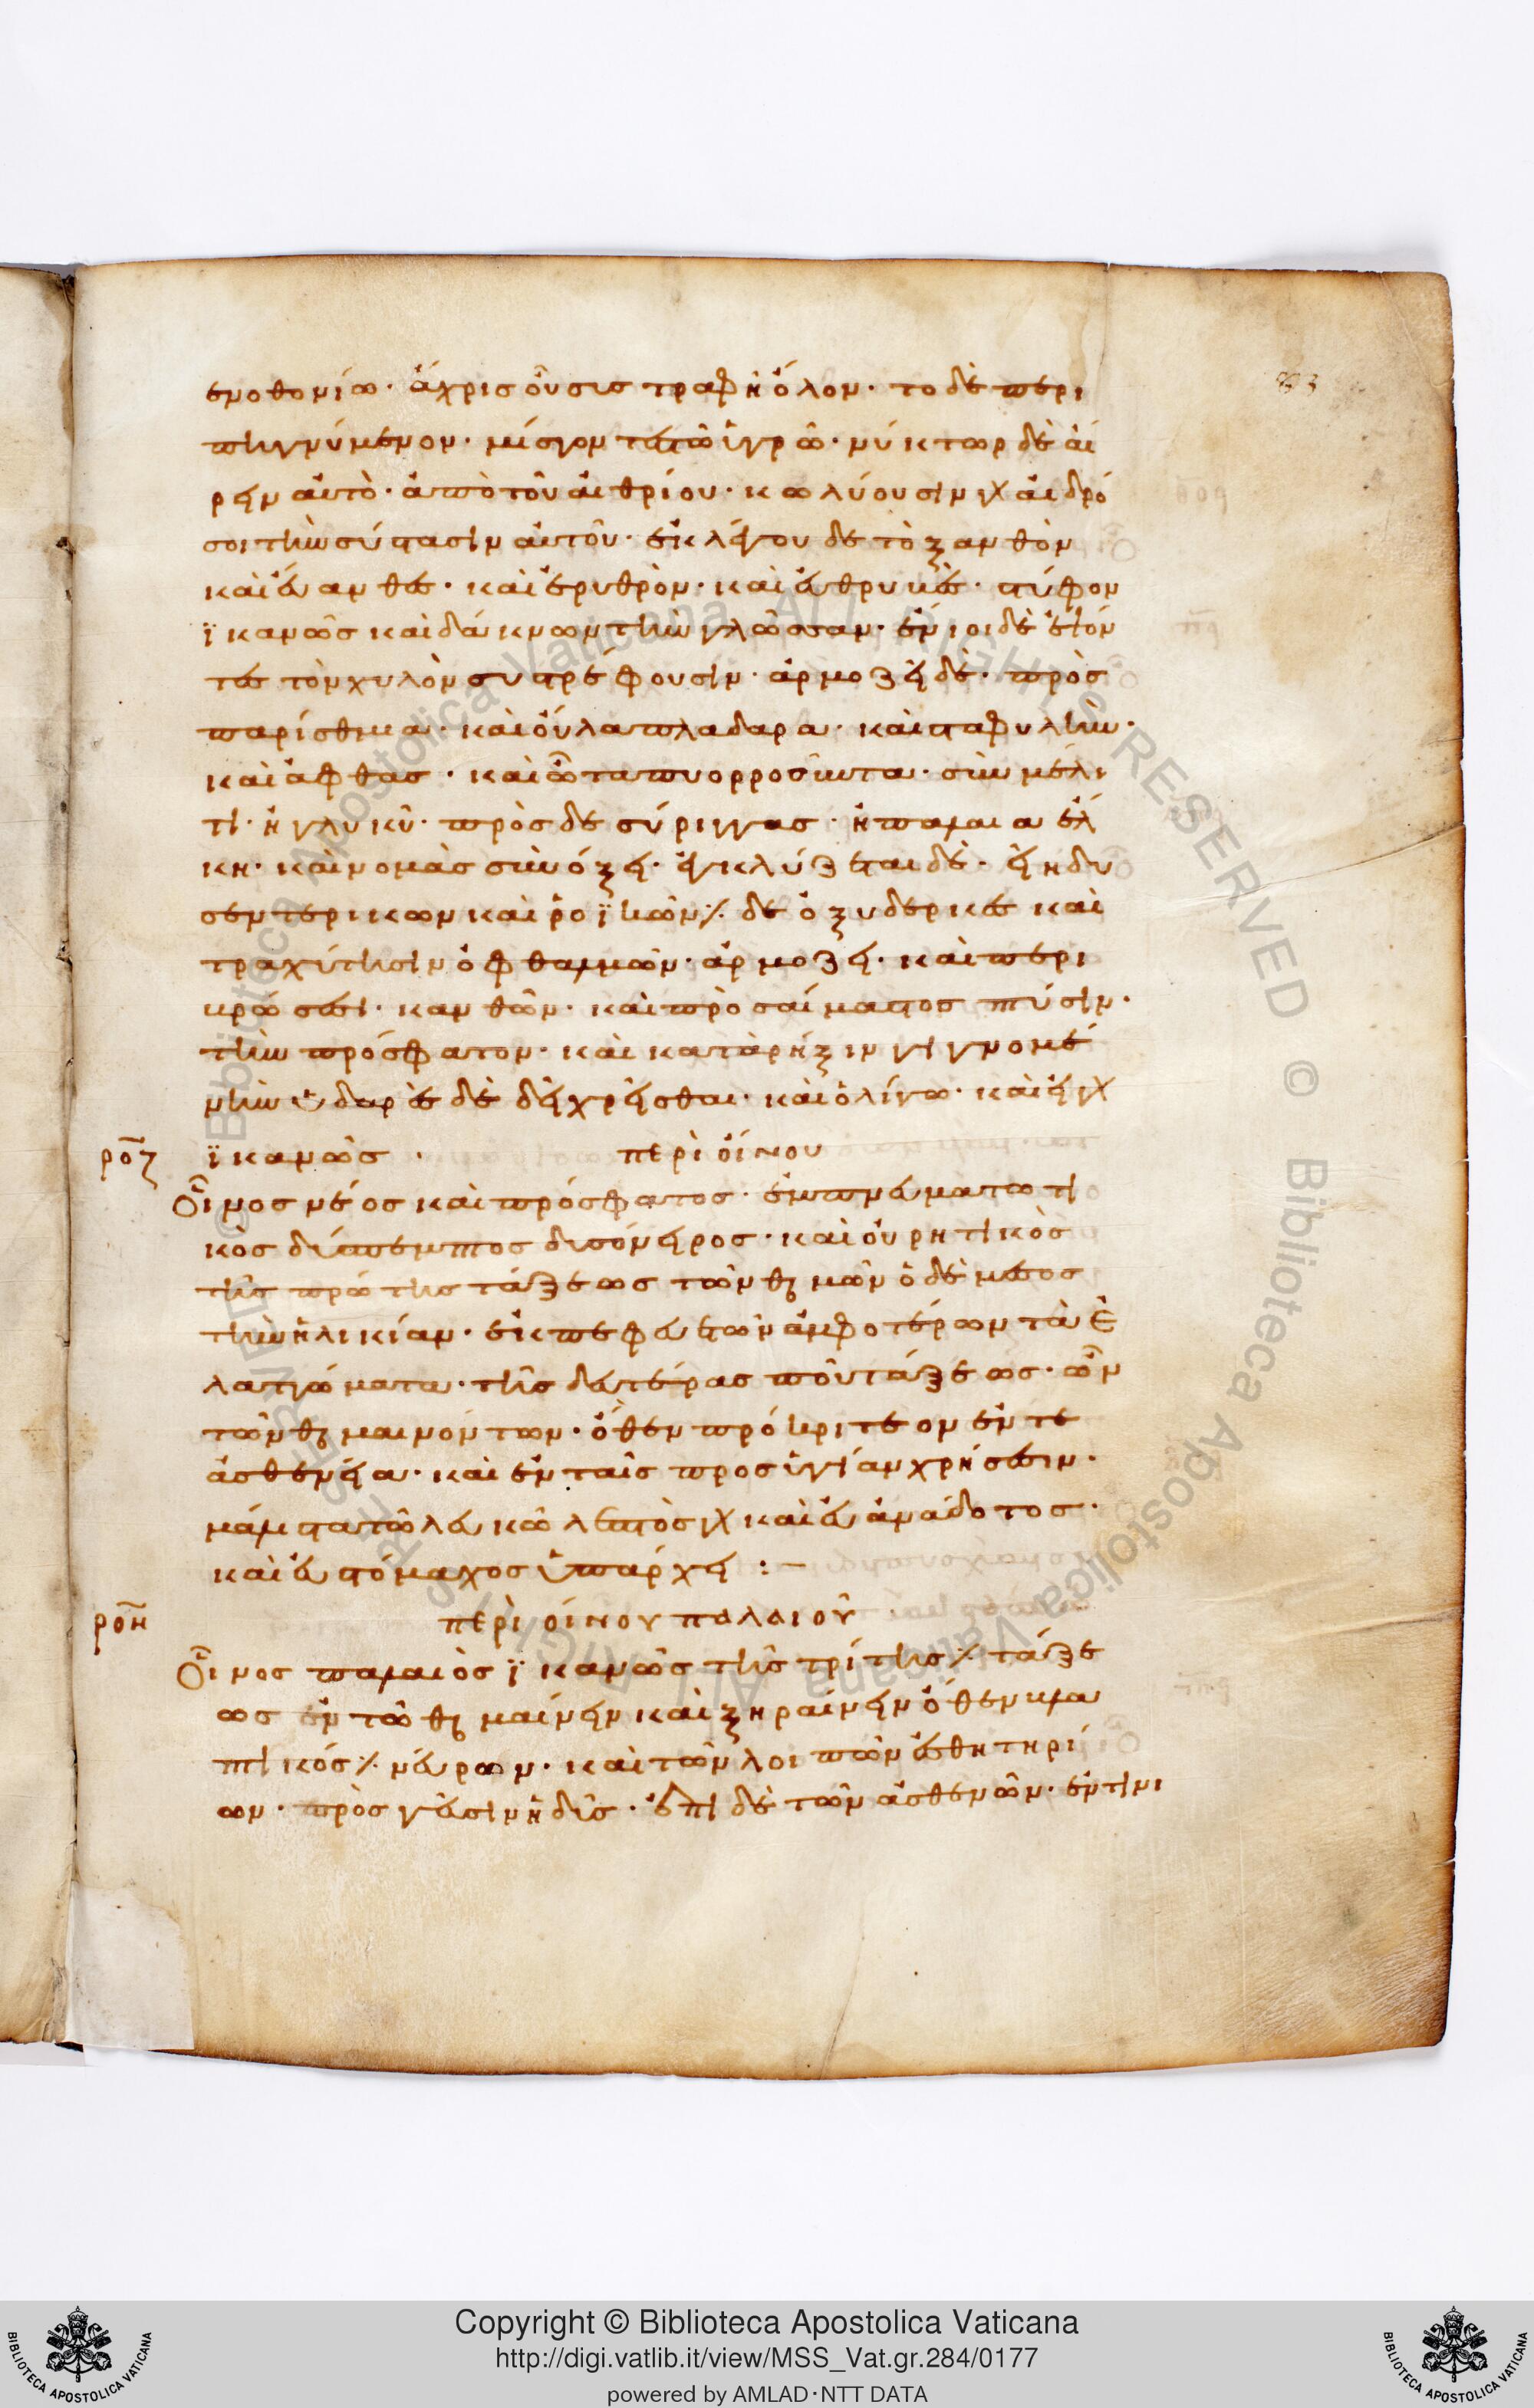 ενοθονίω· ἄχρις οὗ συστραφῆ ὅλον· το δὲ περι
πηγνύμενον· μίσγον τε τῶ ὑγρῶ· νύκτωρ δὲ αἴ
ρειν αὐτὸ· ἀπὸ τοῦ αἰθρίου· κωλύουσιν γὰρ αἱ δρό
σοι τὴν σύστασιν αὐτοῦ· ἐκλέγου δὲ τὸ ξανθὸν
καὶ· καὶ ἐρυθρὸν· καὶ· στύφον
ϊκανῶς καὶ δάκνων τὴν γλῶσσαν· ἔνιοι δὲ
τὸν χυλὸν συστρέφουσιν· ἁρμόζει δὲ· πρὸς
παρίσθμια· καὶ οὖλα πλαδαρα· καὶ σταφυλὴν·
καὶ ἄφθας· καὶ ὦτα πυορροοῦντα· σὺν μέλι
τι· ἢ γλυκῦ· πρὸς δὲ σύριγγας· ἢ παλαια ἕλ
κη· καὶ νομὰς σὺν ὄξει· ἐγκλύζεται δὲ· ἐπὶ δυ
σεντερικων καὶ ῥοϊκῶν· ἔστι δὲ ὀξυδερκὲς καὶ
τραχύτησιν ὀφθαλμῶν· ἁρμόζει· καὶ περι
βρώσεσι· κανθῶν· καὶ πρὸς αἵματος πτύσιν·
τὴν πρόσφατον· καὶ κατὰ ῥῆξιν γιγνομέ
νην ὑδαρὲς δὲ δεῖ χρῆσθαι· καὶ ὀλίγω· καίει γὰρ
ροζ ϊκανῶς · περὶ οἴνου
Οἶνος νέος καὶ πρόσφατος· ἐμπνευματωτι
κὸς δύσπεπτος δυσόνειρος· καὶ οὐρητικὸς
τῆς πρώτης τάξεως τῶν θερμῶν ὁ δὲ μέσος
τὴν ἡλικίαν· ἐκπέφευγων ἀμφοτέρων τὰ ἐ
λαττώματα· τῆς δευτέρας που τάξεως· ὢν
τῶν θερμαινοντων· ὅθεν προκριτεον ἔν τε
ἀσθενεία· καὶ ἐν ταῖς προς ὑγίαν χρήσεσιν·
μάλιστα τῶ λευκῶ λεπτὸς γὰρ καὶ εὐανάδοτος·
καὶ εὐστόμαχος ὑπάρχει :–
ροη περὶ οἴνου παλαιοῦ
Οἶνος παλαιὸς ϊκανῶς τῆς τρίτης ἐστὶ τάξε
ως ἐν τῶ θερμαίνειν καὶ ξηραίνειν ὅθεν βλα
πτικός ἐστι νεύρων· καὶ τῶν λοιπῶν αἰσθητηρί
ων· πρὸς γεῦσιν ἡδὺς· ἐπὶ δὲ τῶν ἀσθενῶν· ἔν τινι
Copyright © Biblioteca Apostolica Vaticana
http://digi.vatlib.it/view/MSS_Vat.gr.284/0177
powered by AMLAD·NTT DATA
BIBLIOTECA APOSTOLICA VATICANA
BIBLIOTECA APOSTOLICA VATICANA